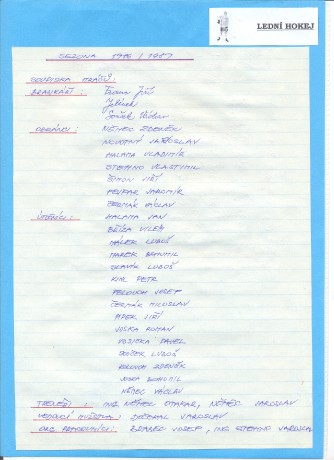 LEDNÍ HOKEJ
SEZONA 1986 / 1987
SOUPISKA HRÁČŮ:
BRANKÁŘI: Franc Jiří
Jelínek
Souček Václav
OBRÁNCI: NĚMEC ZDENĚK
NOVOTNÝ JAROSLAV
HALAMA VLADIMÍR
STEHNO VLASTIMIL
ŠIMON JIŘÍ
PEVKAR JAROMÍR
ČERMÁK VÁCLAV
ÚTOČNÍCI: HALAMA JAN
BŘÍZA VILÉM
MÁLEK LUBOŠ
MAREK BOHUMIL
LUBOŠ
KUNC PETR
PELOUCH JOSEF
ČERMÁK MILOSLAV
PIPEK JIŘÍ
VOSKA ROMAN
VOSIČKA PAVEL
LUBOŠ
ZDENĚK
BOHUMIL
NĚMEC VÁCLAV
TRENÉŘI: ING. NĚMEC OTAKAR, NĚMEC JAROSLAV
VEDOUCÍ MUŽSTVA: DOLEŽAL JAROSLAV
ORG. PRACOVNÍCI: JOSEF, ING STEHNO JAROSLAV